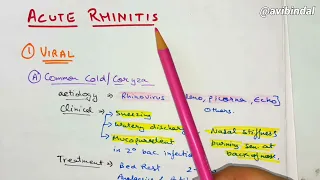 @avibindal
ACUTE RHINITIS
① VIRAL
Ⓐ Common Cold/Coryza
aetiology → Rhinovirus, Picorna, Echo]
Others.
Clinical → Sneezing
→ Watery discharge
→ Mucopurulent → Nasal Stiffness
in 2° bac infection burning sen at
back of nose.
Treatment → Bed Rest 2-